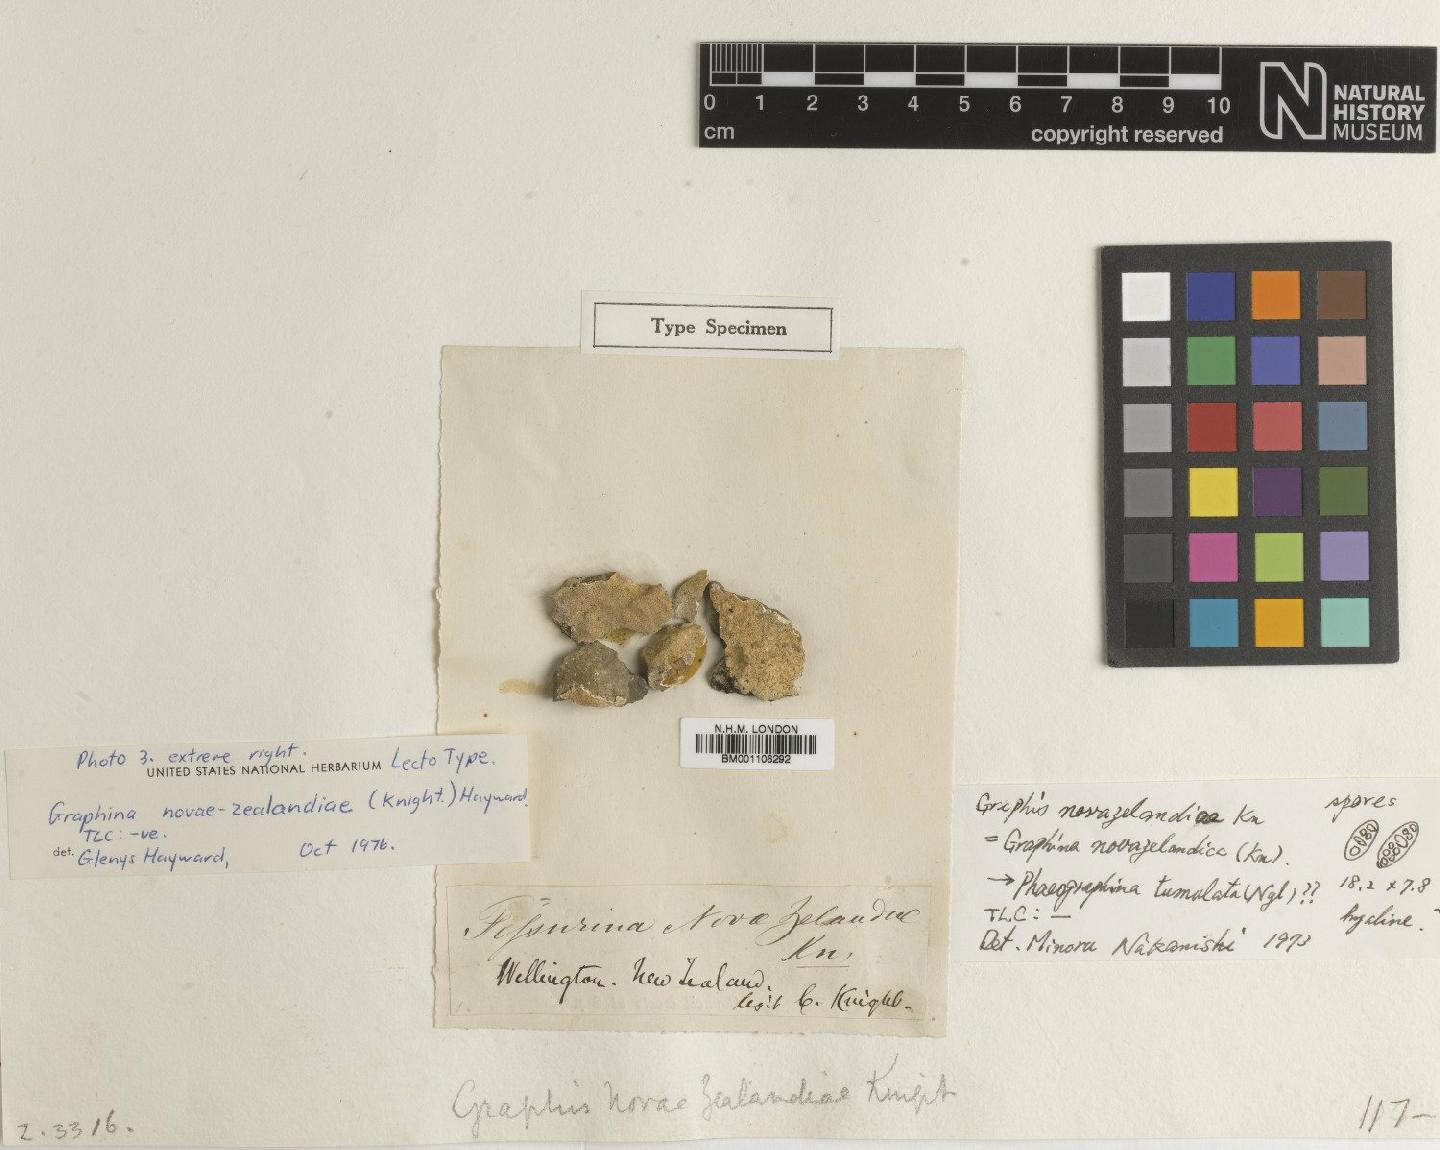 0 1 2 3 4 5 6 7 8 9 10
cm
copyright reserved
NATURAL
HISTORY
MUSEUM
Type Specimen
N.H.M. LONDON
BM001106292
Photo 3. extreme right.
UNITED STATES NATIONAL HERBARIUM Lecto Type.
Graphina novae-zealandiae (Knight.) Hayward.
TLC: -ve.
det. Glenys Hayward, Oct 1976.
Graphis novazelandiae Kn
= Graphina novazelandica (Kn).
→ Phaeographina tumulata (Nyl)??
TLC: —
Det. Minoru Nakanishi 1973
spores
18.2 x 7.8
hyaline.
Fissurina Novæ Zelandiæ
Kn.
Wellington. New Zealand.
legit C. Knight.
Graphis Novae Zealandiae Knight
2.3316.
117-